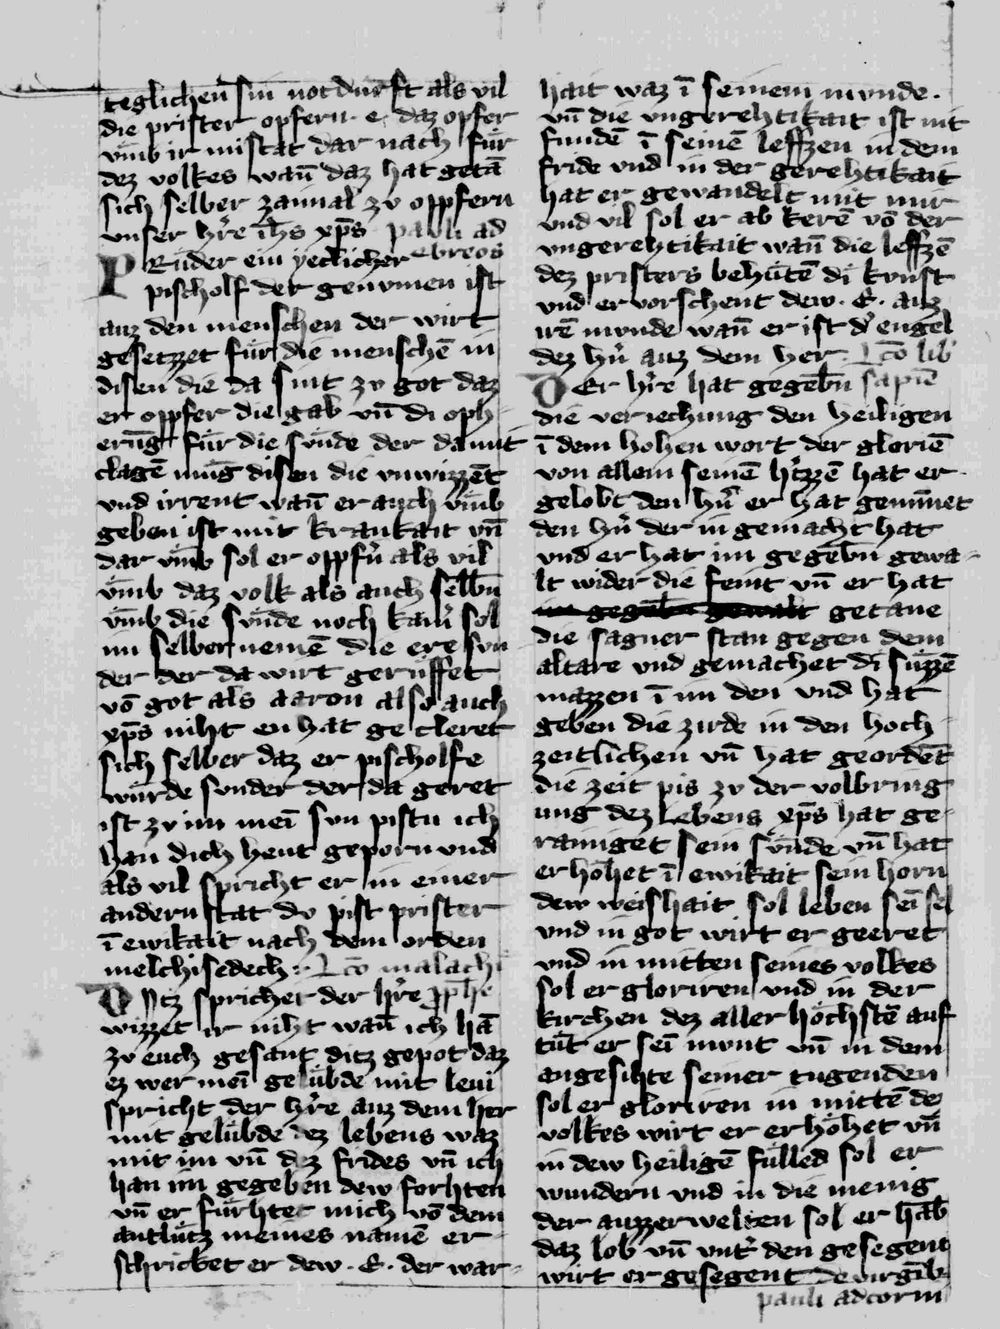 teglichen sin notdurft als vil
die prister opfern · e · daz opfer
vmb ir mistat dar nach für
dez volkes wan̄ daz hat getā
sich selber zaimal zv oppfern
vnser hr̄e ih̄s xp̄s pauli ad
PRüder ein yeclicher ebreos
pischolf der genvmen ist
auz den menschen der wirt
gesetzzet für die menschē in
disen die da sint zv got daz
er oppfer die gab vn̄ di oph
erūg für die svnde der da mit
clagē mūg disen die vnwizzēt
vnd irrent wan̄ er auch vmb
geben ist mit krankait vn̄
dar vmb sol er oppfn̄ als vil
vmb daz volk als auch selbn̄
vmb die svnde noch kain̄ sol
im selber nemē die ere svn
der der da wirt gerüffet
vō got als aaron also auch
xp̄s niht en hat ge cleret
sich selber daz er pischolfe
würde svnder der da geret
ist zv im meī svn pistu ich
han dich heut geporn vnd
als vil spricht er in einer
andern stat dv pist prister
ī ewikait nach dem orden
melchisedech · Lc̄o malachi
DItz sprichet der hr̄e pp̄he
wizzet ir niht wan̄ ich hā
zv euch gesant ditz gepot daz
ez wer meī gelübde mit leui
spricht der hr̄e auz dem her
mit gelübde dez lebens waz
mit im vn̄ dez frides vn̄ ich
han im gegeben dew forhten
vn̄ er fürhtet mich vō dem
antlütz meines namē er
schricket er dew · E · der war-
hait waz ī seinem mvnde ·
vn̄ die vngerehtikait ist nit
fundē ī seinē leffzen in dem
fride vnd in der gerehtikait
hat er gewandelt mit mir
vnd vil sol er ab kerē vō der
vngerehtikait wan̄ die leffzē
dez pristers behütē di kvnst
vnd er vorschent dew · E · auz
irē mvnde wan̄ er ist d' engel
dez hn̄ auz dem her · Lc̄o lib'
DEr hr̄e hat gegebn̄ sapiē
die veriechung den heiligen
ī dem hohen wort der gloriē
von allem seinē h'tzzē hat er
gelobt den hn̄ er hat gemīnet
den hn̄ der in gemacht hat
vnd er hat im gegebn̄ gewa-
lt wider die feint vn̄ er hat
im gegebn̄ gewalt getane
die sagner stan gegen dem
altare vnd gemachet di süzzē
mazzen ī im den vnd hat
geben die zirde in den hoch
zeitlichen vn̄ hat geordēt
die zeit pis zv der volbring
ung dez lebens xp̄s hat ge-
rainiget sein svnde vn̄ hat
erhöhet ī ewikait sein horn
dew weishait sol leben seī sel
vnd in got wirt er geeret
vnd in mitten seines volkes
sol er gloriren vnd in der
kirchen dez aller höchstē auf
tūt er seī mvnt vn̄ in dem
angesihte seiner tugenden
sol er gloriren in mittē dez
volkes wirt er erhöhet vn̄
in dew heiligē fülled sol er
wundern vnd in die menig
der auzzerwelten sol er hab̄
daz lob vn̄ vnt' den gesegent
wirt er gesegent De virgīb
pauli ad corin